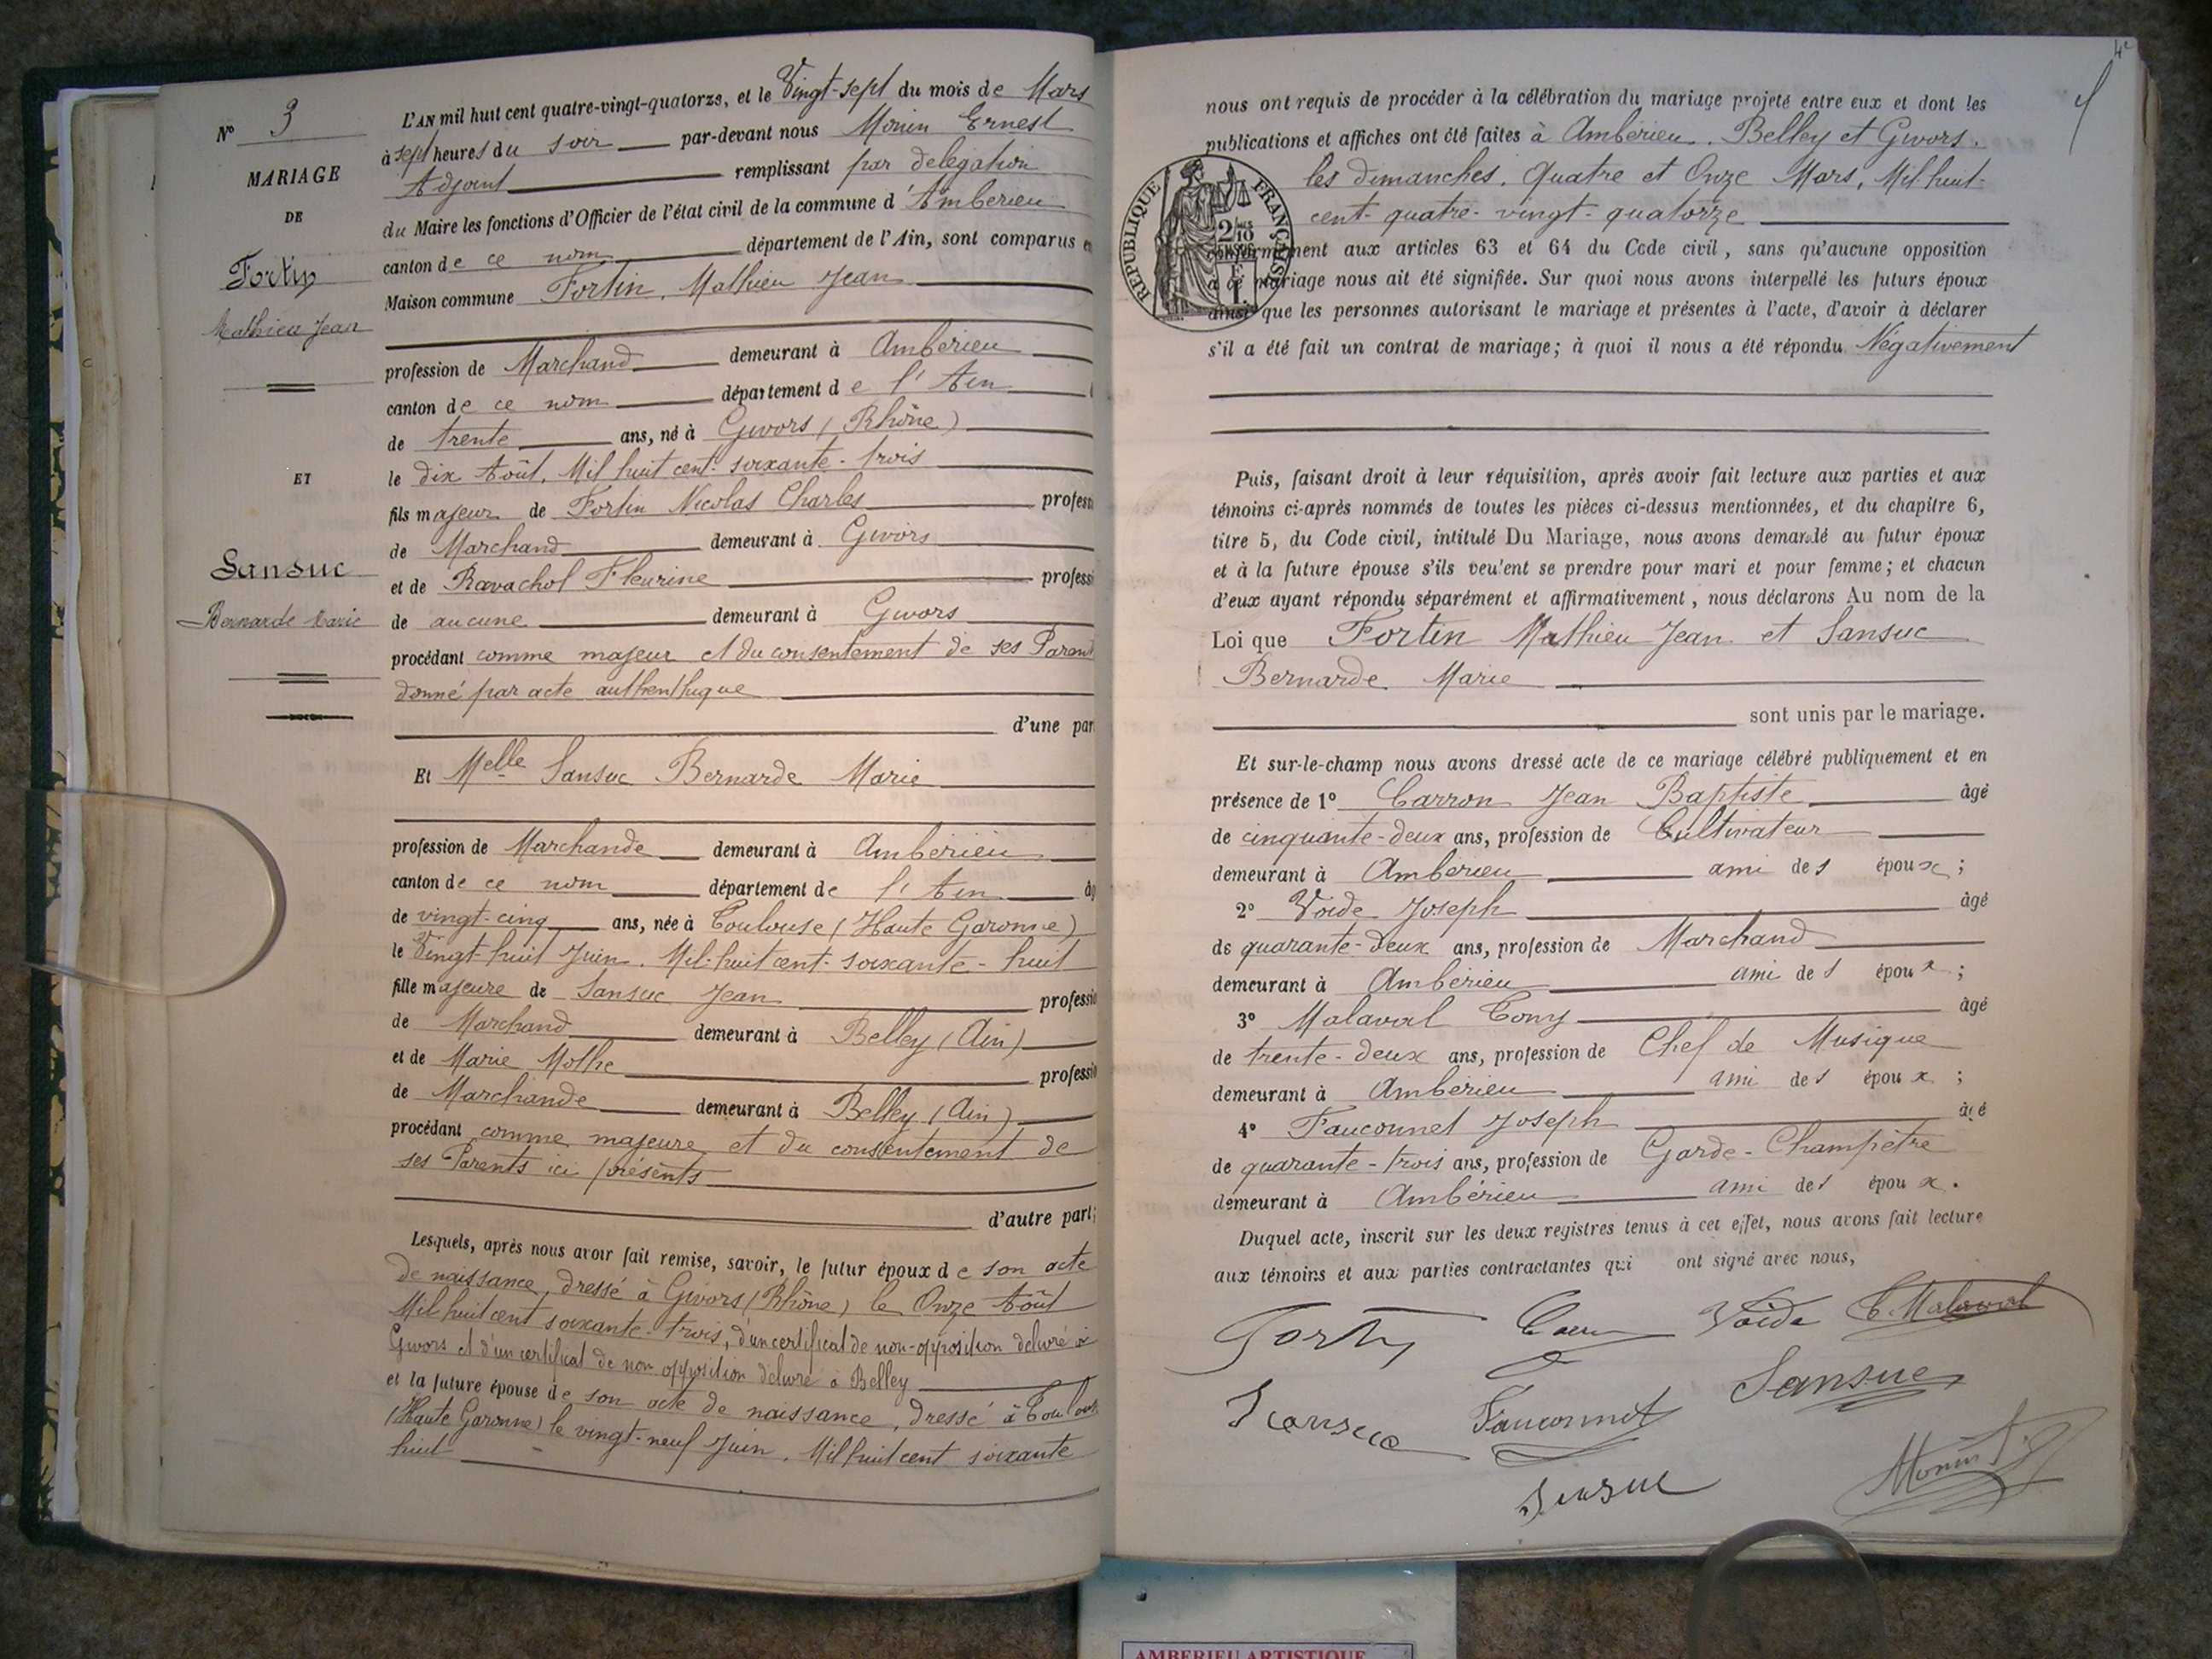 N° 3
MARIAGE
DE
Fortin
Mathieu Jean
ET
Sansuc
Bernarde Marie
L'AN mil huit cent quatre-vingt-quatorze, et le Vingt-sept du mois de Mars
à sept heures du soir par-devant nous Monin Ernest
Adjoint remplissant par délégation
du Maire les fonctions d'Officier de l'état civil de la commune d'Ambérieu
canton de ce nom département de l'Ain, sont comparus en
Maison commune Fortin, Mathieu Jean
profession de Marchand demeurant à Ambérieu
canton de ce nom département de l'Ain
de trente ans, né à Givors (Rhône)
le dix Août, Mil huit cent-soixante-trois
fils majeur de Fortin Nicolas Charles professi
de Marchand demeurant à Givors
et de Ravachol Fleurine professi
de aucune demeurant à Givors
procédant comme majeur et du consentement de ses Parent
donné par acte authentique
d'une par
Et Melle Sansuc Bernarde Marie
profession de Marchande demeurant à Ambérieu
canton de ce nom département de l'Ain âg
de vingt-cinq ans, née à Toulouse (Haute Garonne)
le Vingt-huit Juin, Mil-huit cent-soixante-huit
fille majeure de Sansuc Jean professio
de Marchand demeurant à Belley (Ain)
et de Marie Mothe professio
de Marchande demeurant à Belley (Ain)
procédant comme majeure et du consentement de
ses Parents ici présents
d'autre part;
Lesquels, après nous avoir fait remise, savoir, le futur époux de son acte
de naissance, dressé à Givors (Rhône) le Onze Août
Mil huit cent soixante-trois, d'un certificat de non-opposition délivré à
Givors et d'un certificat de non opposition délivré à Belley
et la future épouse de son acte de naissance, dressé à Toulous
(Haute Garonne) le vingt-neuf Juin, Mil huit cent soixante
huit
4e
nous ont requis de procéder à la célébration du mariage projeté entre eux et dont les
publications et affiches ont été faites à Ambérieu, Belley et Givors.
les dimanches, Quatre et Onze Mars, Mil-huit-
cent-quatre-vingt-quatorze
RÉPUBLIQUE FRANÇAISE
conformément aux articles 63 et 64 du Code civil, sans qu'aucune opposition
à ce mariage nous ait été signifiée. Sur quoi nous avons interpellé les futurs époux
ainsi que les personnes autorisant le mariage et présentes à l'acte, d'avoir à déclarer
s'il a été fait un contrat de mariage; à quoi il nous a été répondu Négativement
Puis, faisant droit à leur réquisition, après avoir fait lecture aux parties et aux
témoins ci-après nommés de toutes les pièces ci-dessus mentionnées, et du chapitre 6,
titre 5, du Code civil, intitulé Du Mariage, nous avons demandé au futur époux
et à la future épouse s'ils veulent se prendre pour mari et pour femme; et chacun
d'eux ayant répondu séparément et affirmativement, nous déclarons Au nom de la
Loi que Fortin Mathieu Jean et Sansuc
Bernarde Marie
sont unis par le mariage.
Et sur-le-champ nous avons dressé acte de ce mariage célébré publiquement et en
présence de 1° Carron Jean Baptiste âgé
de cinquante-deux ans, profession de Cultivateur
demeurant à Ambérieu ami des époux;
2° Voide Joseph âgé
de quarante-deux ans, profession de Marchand
demeurant à Ambérieu ami des époux;
3° Malaval Tony âgé
de trente-deux ans, profession de Chef de Musique
demeurant à Ambérieu ami des époux;
4° Fauconnet Joseph âgé
de quarante-trois ans, profession de Garde-Champêtre
demeurant à Ambérieu ami des époux.
Duquel acte, inscrit sur les deux registres tenus à cet effet, nous avons fait lecture
aux témoins et aux parties contractantes qui ont signé avec nous,
Fortin Voide T. Malaval
Sansuc Fauconnet Sansuc
Sansuc Monin
AMBERIEU ARTISTIQUE